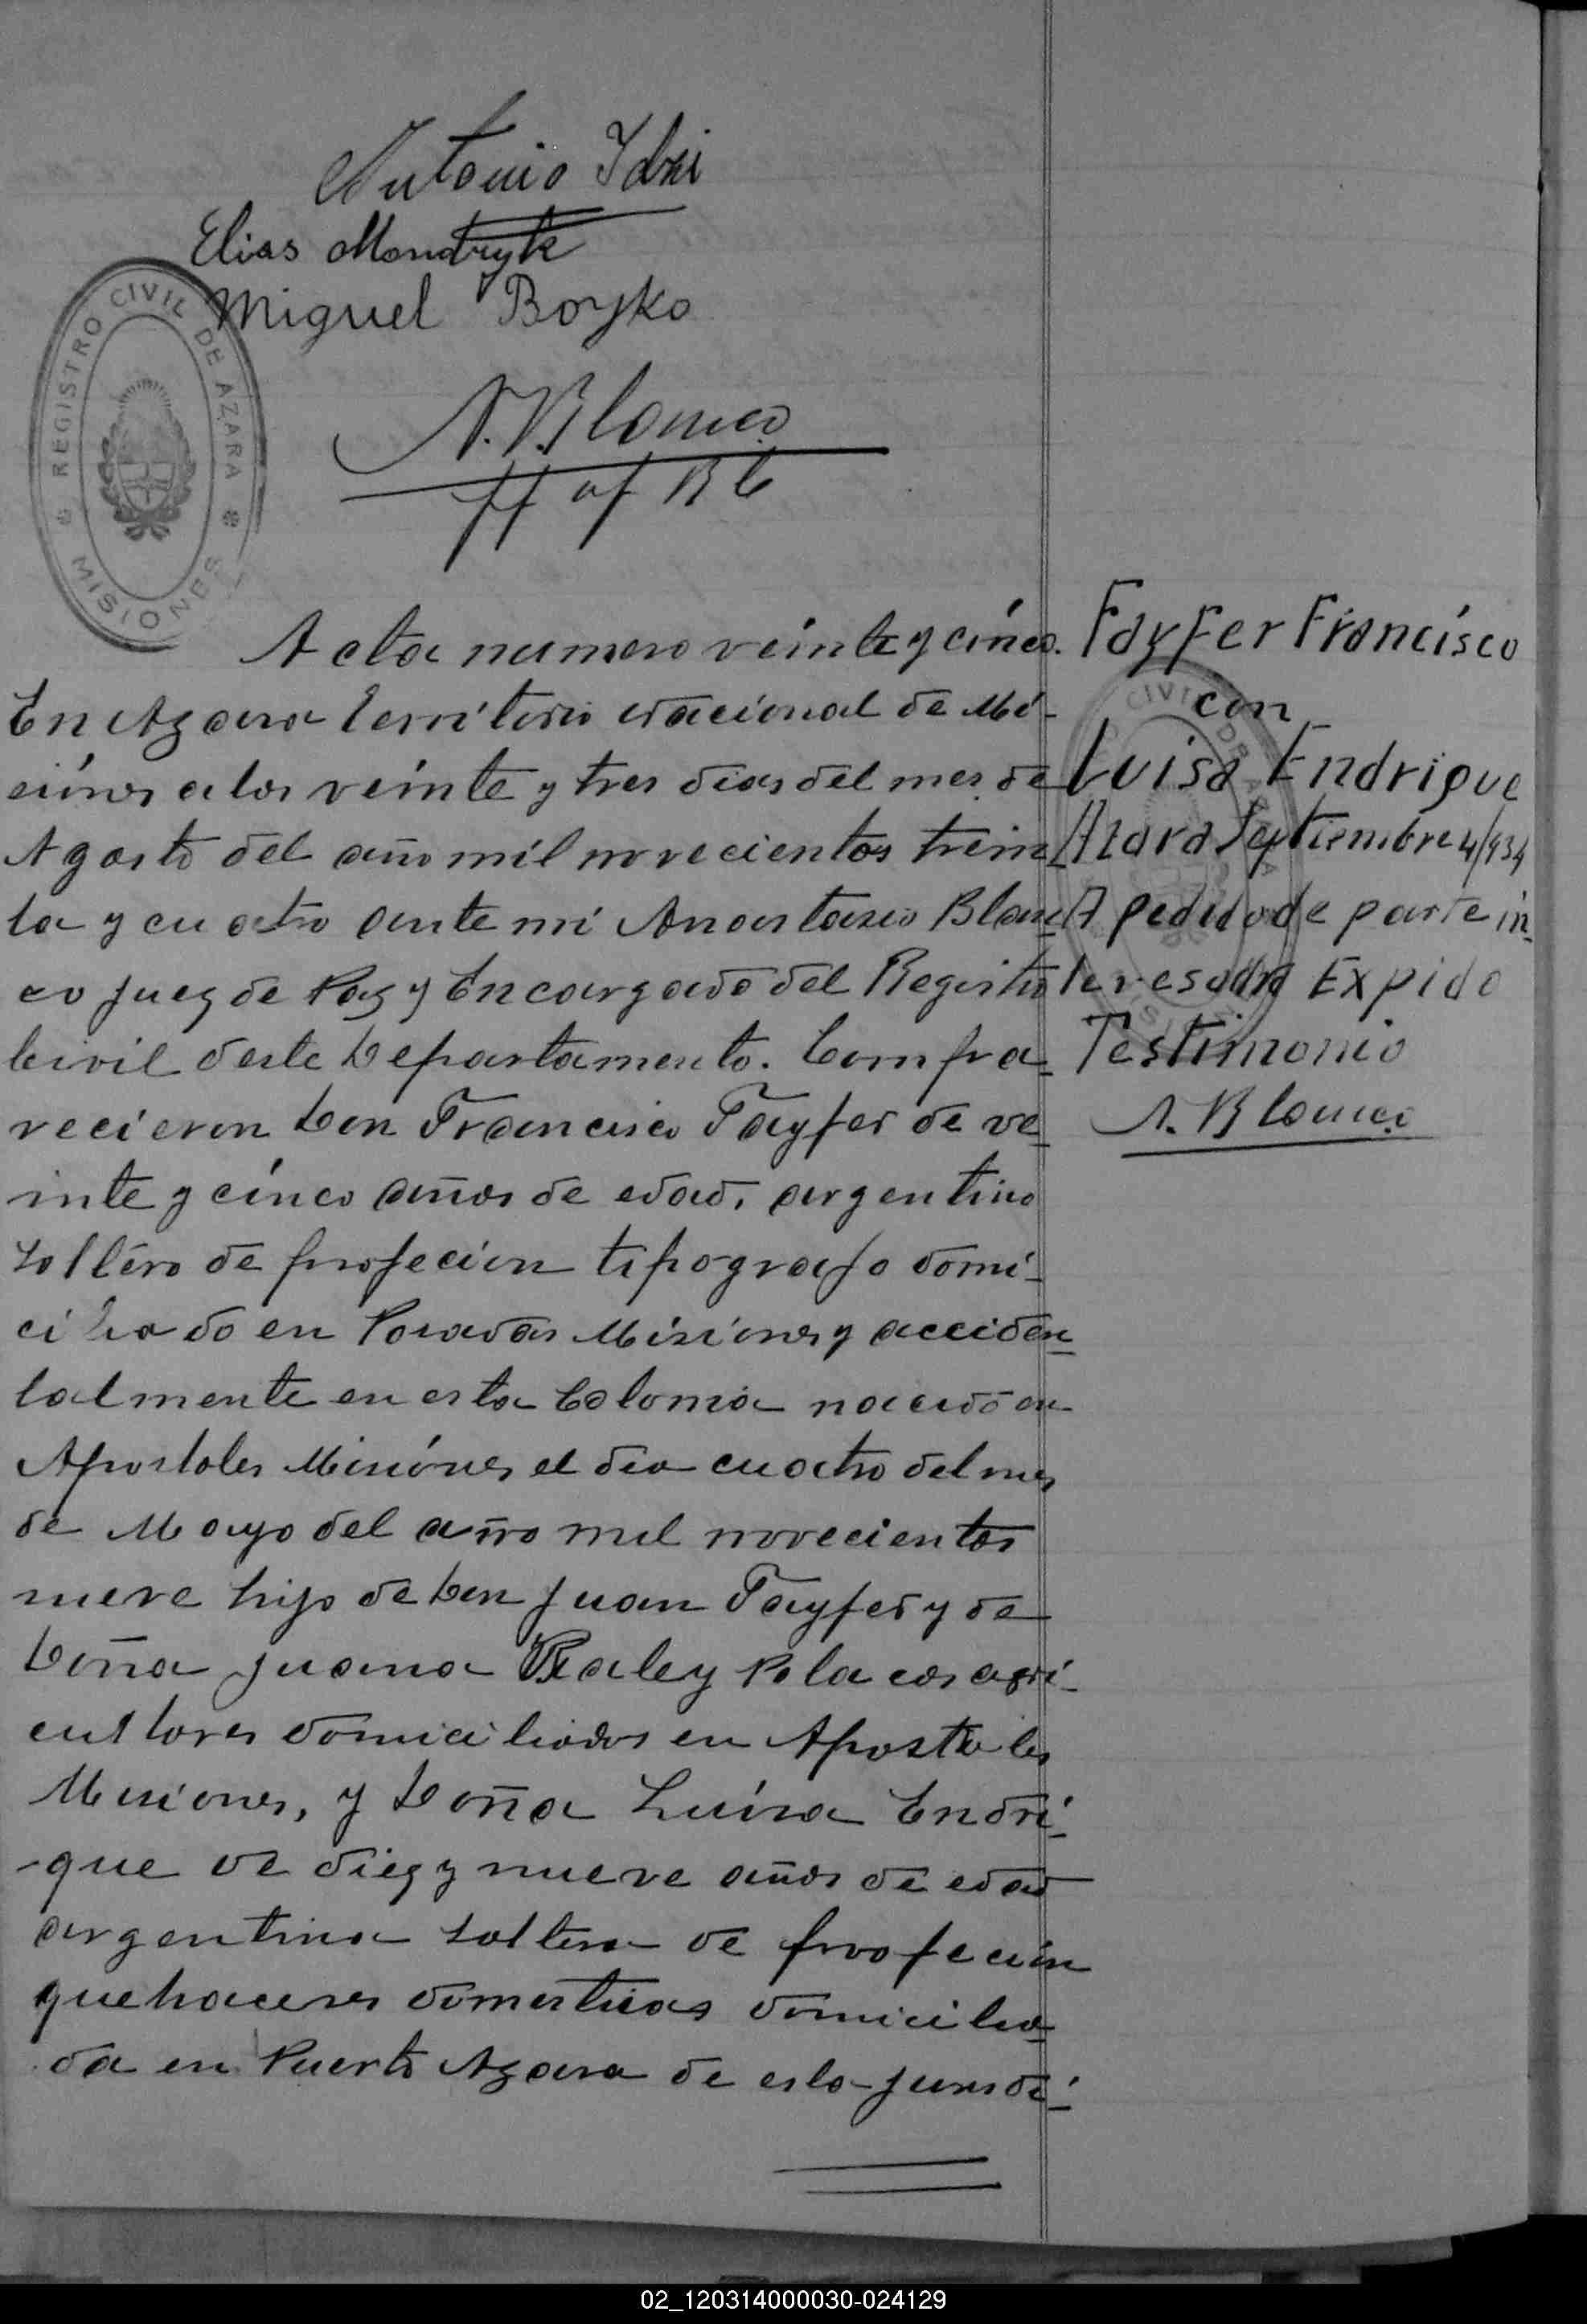 Antonio Idzi
Elias Mondryk
Miguel Boyko
REGISTRO CIVIL DE AZARA
MISIONES
A. Blanco
Acta numero veinte y cinco.
En Azara Territorio Nacional de Mi-
siones a los veinte y tres dias del mes de
Agosto del año mil novecientos trein
ta y cuatro ante mi Anastasio Blan
co Juez de Paz y Encargado del Registro
Civil deste Departamento. Compa-
recieron Don Francisco Fayfer de ve
inte y cinco años de edad, argentino
soltero de profecion tipografo domi-
ciliado en Posadas Misiones y acciden
talmente en esta Colonia nacido en
Apostoles Misiones el dia cuatro del mes
de Mayo del año mil novecientos
nueve hijo de Don Juan Fayfer y de
Doña Juana Raley Polacos agri-
cultores domiciliados en Apostoles
Misiones, y Doña Luisa Endri-
-que de diez y nueve años de edad
argentina soltera de profecion
quehaceres domesticos domicilia
da en Puerto Azara de esta jurisdi-
Fayfer Francisco
con
Luisa Endrique
Azara Septiembre 4/934
A pedido de parte in-
teresada Expido
Testimonio
A. Blanco
02_120314000030-024129